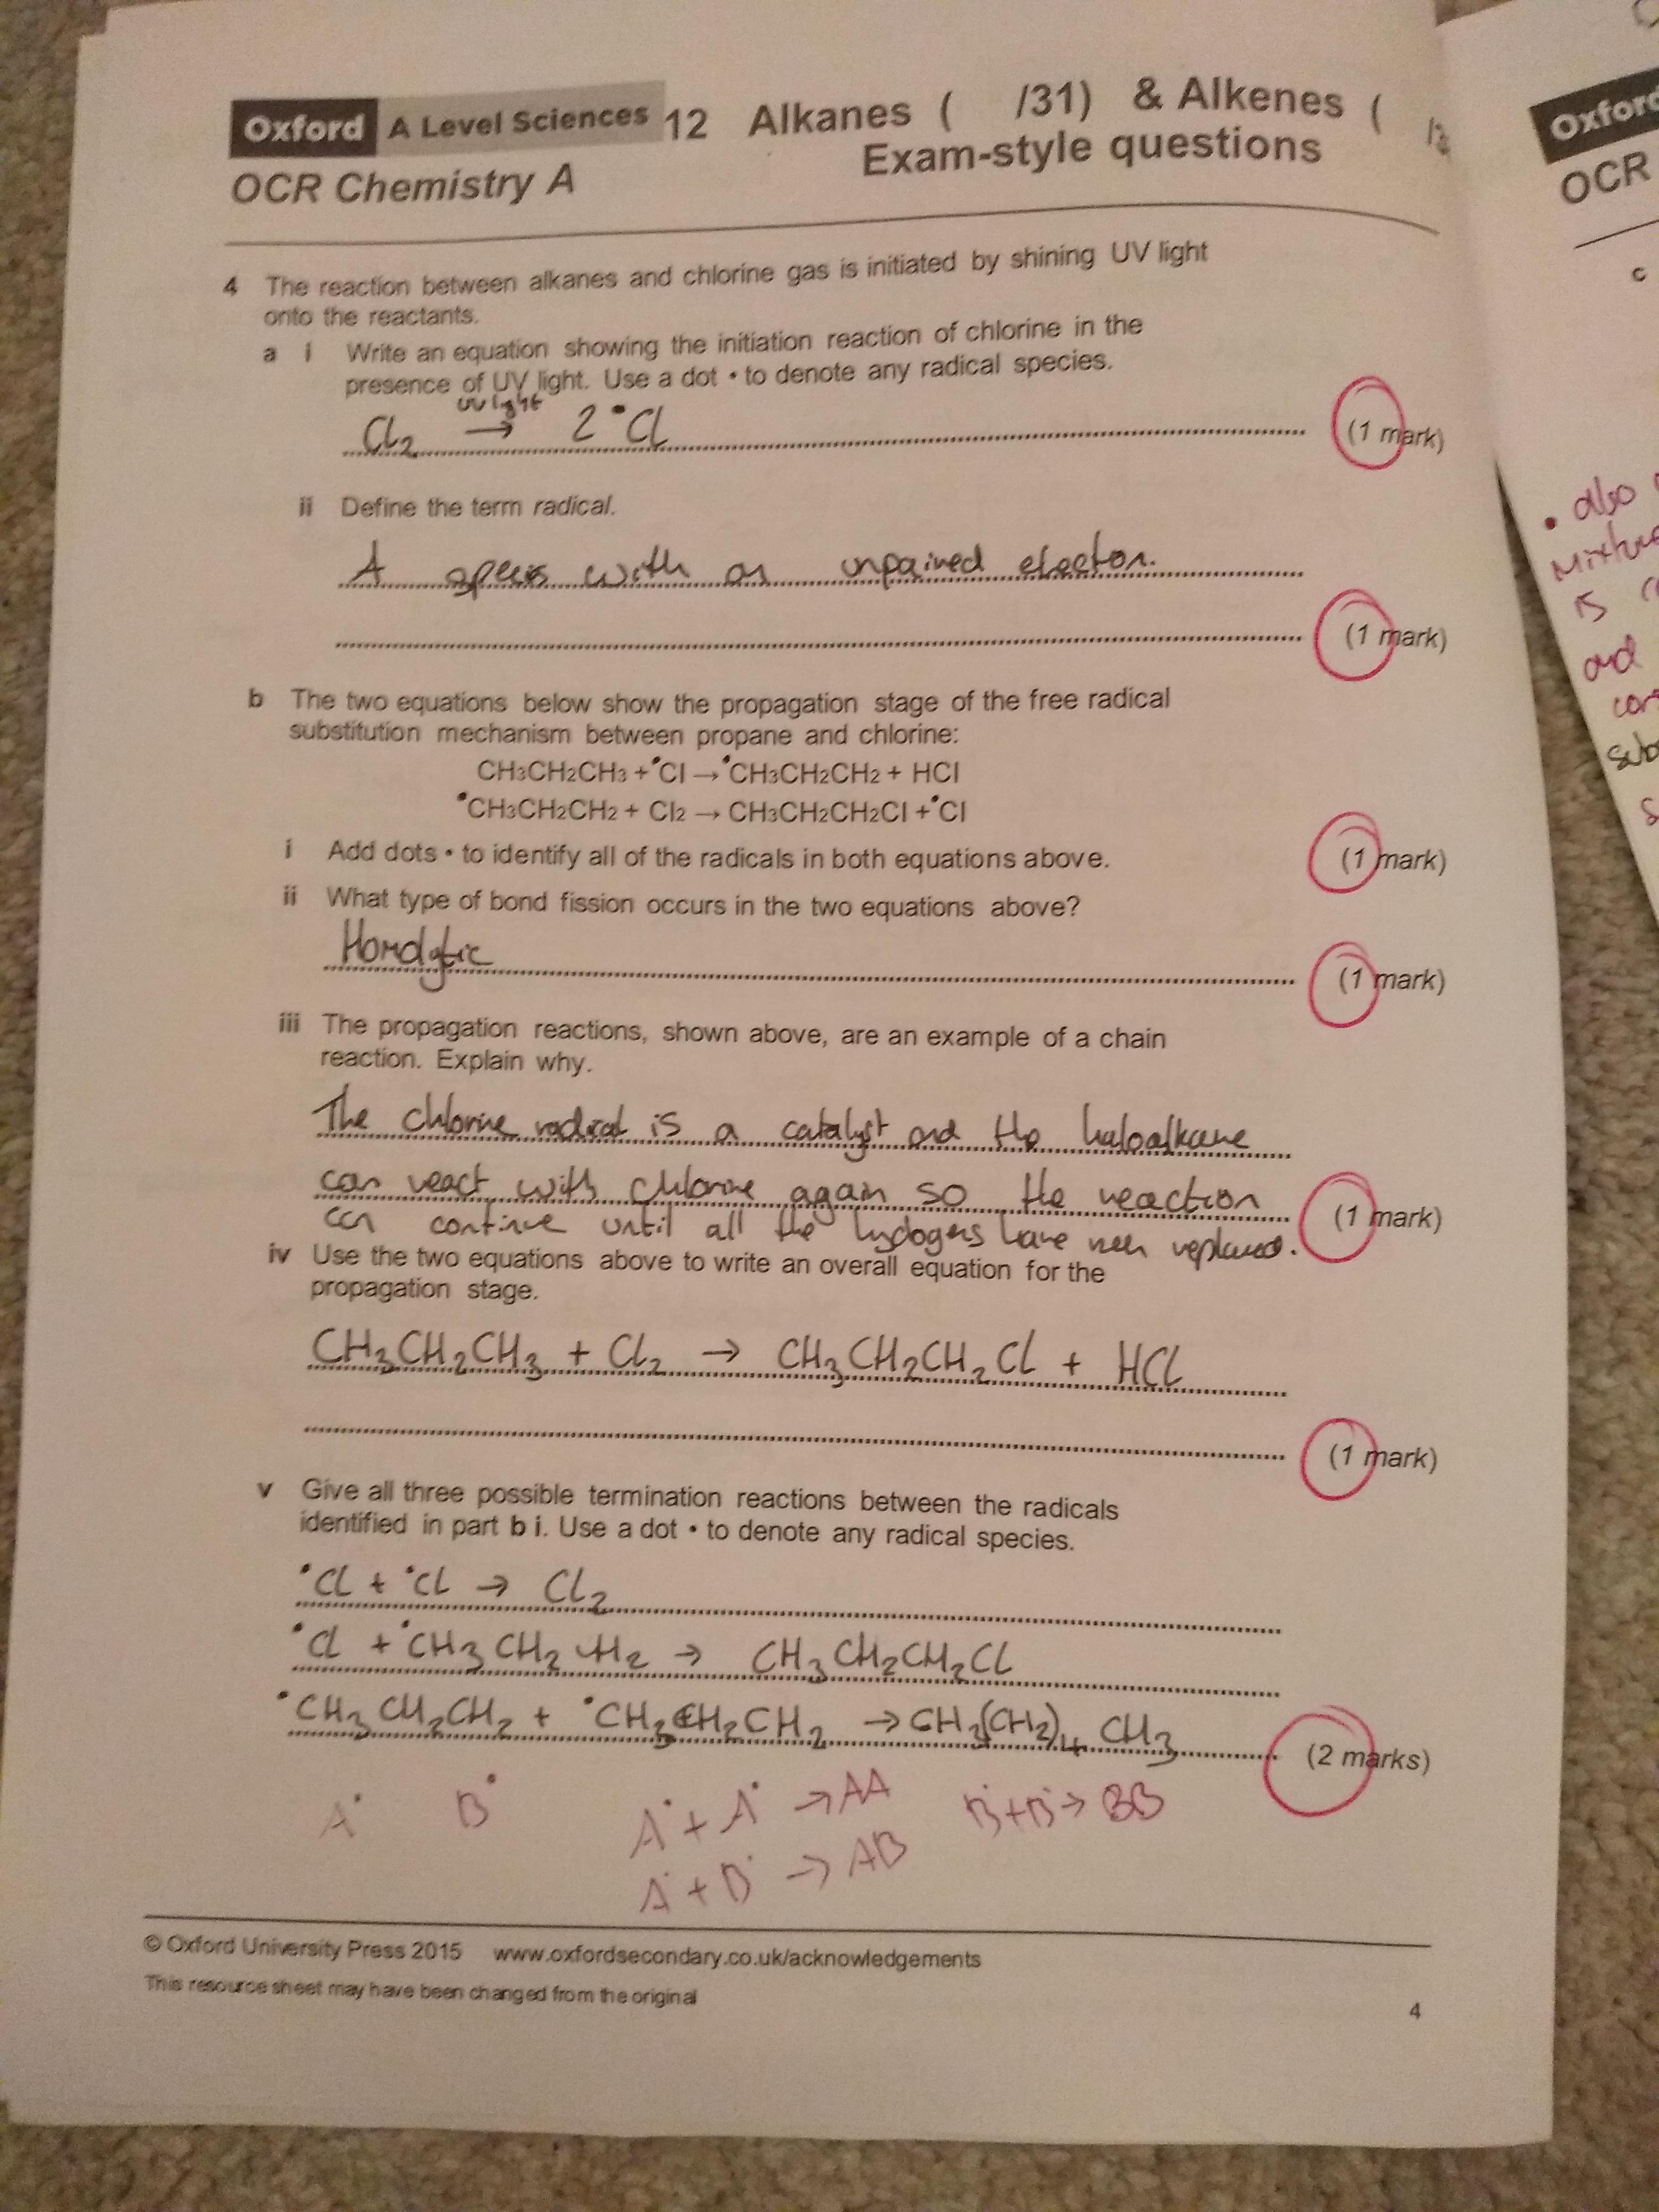 Oxford A Level Sciences 12 Alkanes ( /31) & Alkenes (
Exam-style questions
OCR Chemistry A
4 The reaction between alkanes and chlorine gas is initiated by shining UV light
onto the reactants.
a i Write an equation showing the initiation reaction of chlorine in the
presence of UV light. Use a dot • to denote any radical species.
UV light
Cl₂ → 2 •Cl (1 mark)
ii Define the term radical.
A species with an unpaired electron.
(1 mark)
b The two equations below show the propagation stage of the free radical
substitution mechanism between propane and chlorine:
CH₃CH₂CH₃ + •Cl → •CH₃CH₂CH₂ + HCl
•CH₃CH₂CH₂ + Cl₂ → CH₃CH₂CH₂Cl + •Cl
i Add dots • to identify all of the radicals in both equations above. (1 mark)
ii What type of bond fission occurs in the two equations above?
Homolytic (1 mark)
iii The propagation reactions, shown above, are an example of a chain
reaction. Explain why.
The chlorine radical is a catalyst and the haloalkane
can react with chlorine again so the reaction (1 mark)
can continue until all the hydogens have been replaced.
iv Use the two equations above to write an overall equation for the
propagation stage.
CH₃CH₂CH₃ + Cl₂ → CH₃CH₂CH₂Cl + HCl
(1 mark)
v Give all three possible termination reactions between the radicals
identified in part b i. Use a dot • to denote any radical species.
•Cl + •Cl → Cl₂
•Cl + •CH₃CH₂CH₂ → CH₃CH₂CH₂Cl
•CH₃CH₂CH₂ + •CH₃CH₂CH₂ → CH₃(CH₂)₄CH₃ (2 marks)
A• B• A• + A• → AA B• + B• → BB
A• + B• → AB
© Oxford University Press 2015 www.oxfordsecondary.co.uk/acknowledgements
This resource sheet may have been changed from the original
4
Oxford
OCR
c
• also
Mixture
is
and